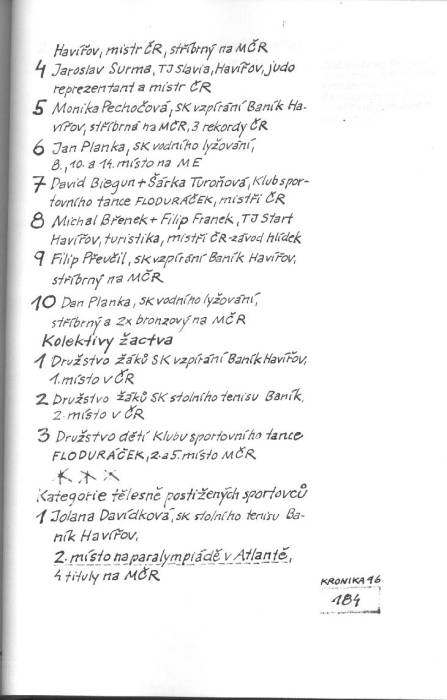 Havířov, mistr ČR, stříbrný na MČR
4 Jaroslav Surma, TJ Slavia, Havířov, judo
reprezentant a mistr ČR
5 Monika Pechočová, SK vzpírání Baník Ha-
vířov, stříbrná na MČR, 3 rekordy ČR
6 Jan Planka, SK vodního lyžování,
8., 10. a 14. místo na ME
7 David Biegun + Šárka Turoňová, Klub spor-
tovního tance FLODURÁČEK, mistři ČR
8 Michal Břenek + Filip Franek, TJ Start
Havířov, turistika, mistři ČR-závod hlídek
9 Filip Převčil, SK vzpírání Baník Havířov,
stříbrný na MČR
10 Dan Planka, SK vodního lyžování,
stříbrný a 2x bronzový na MČR
Kolektivy žactva
1 Družstvo žáků SK vzpírání Baník Havířov,
1. místo v ČR
2 Družstvo žáků SK stolního tenisu Baník,
2. místo v ČR
3 Družstvo dětí Klubu sportovního tance
FLODURÁČEK, 2. a 5. místo MČR
Kategorie tělesně postižených sportovců
1 Jolana Davídková, SK stolního tenisu Ba-
ník Havířov,
2. místo na paralympiádě v Atlantě,
4 tituly na MČR
KRONIKA 96
184